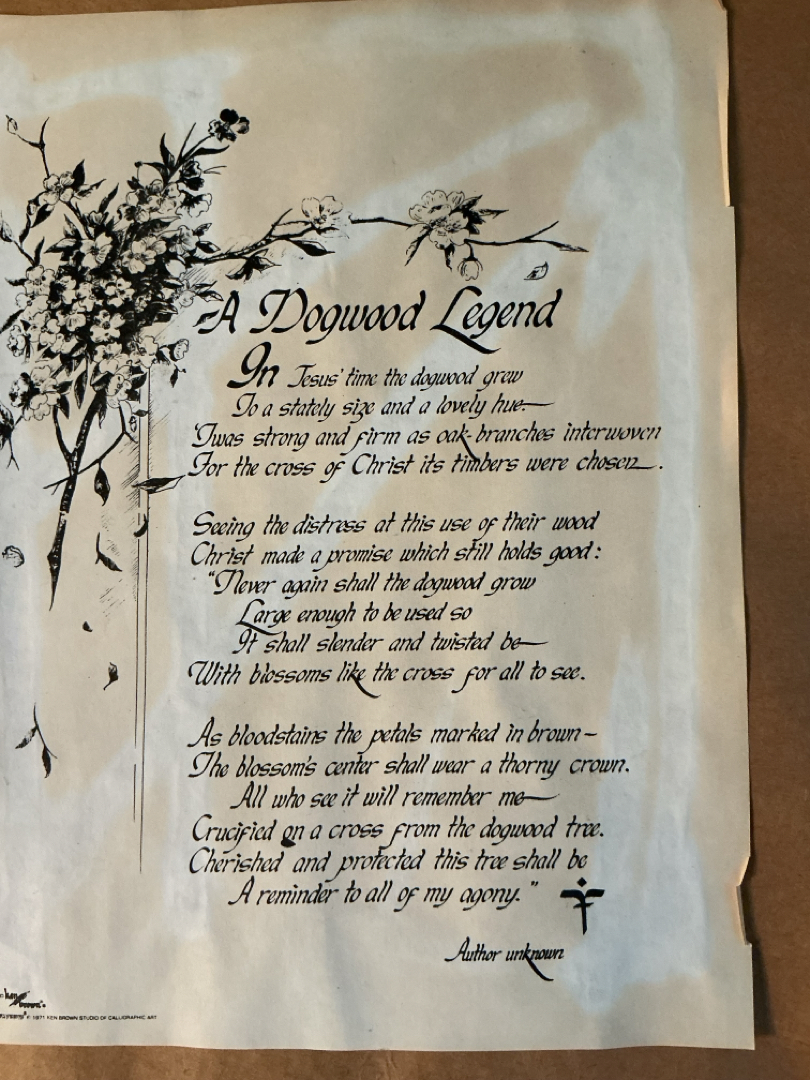 A Dogwood Legend
In Jesus' time the dogwood grew
To a stately size and a lovely hue.—
'Twas strong and firm as oak-branches interwoven
For the cross of Christ its timbers were chosen.
Seeing the distress at this use of their wood
Christ made a promise which still holds good:
"Never again shall the dogwood grow
Large enough to be used so
It shall slender and twisted be—
With blossoms like the cross for all to see.
As bloodstains the petals marked in brown—
The blossom's center shall wear a thorny crown.
All who see it will remember me—
Crucified on a cross from the dogwood tree.
Cherished and protected this tree shall be
A reminder to all of my agony."
Author unknown
Ken Brown
© 1971 KEN BROWN STUDIO OF CALLIGRAPHIC ART